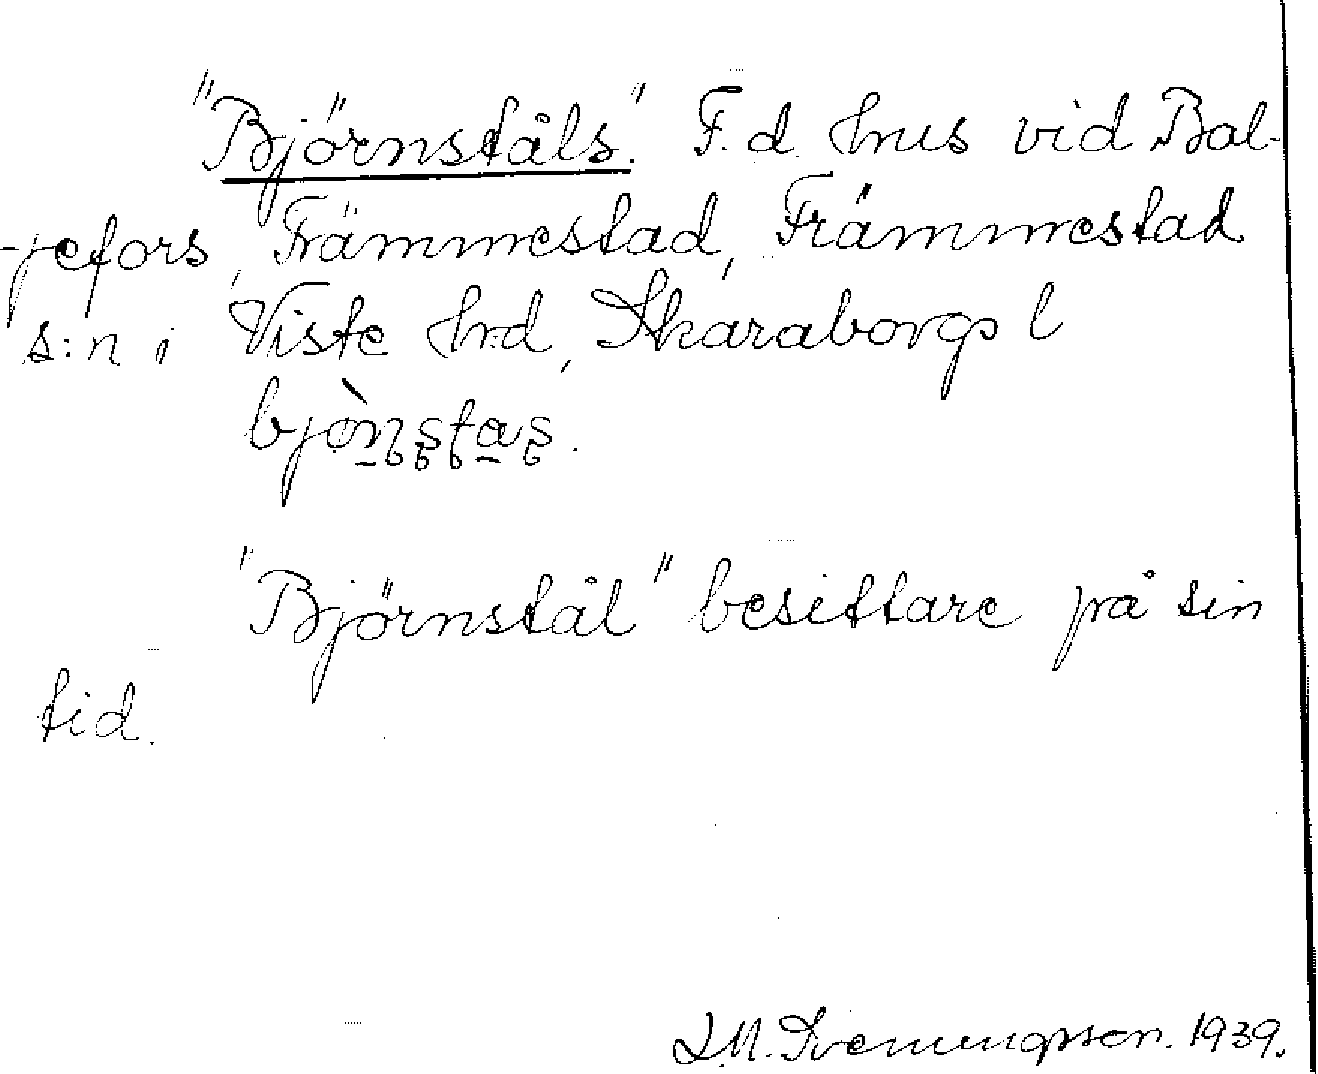 "Björnståls." F. d. hus vid Bal-
jefors, Främmestad, Främmestad
s:n i Viste hrd, Skaraborgs l
bjònstas.
"Björnstål" besittare på sin
tid.
1939.